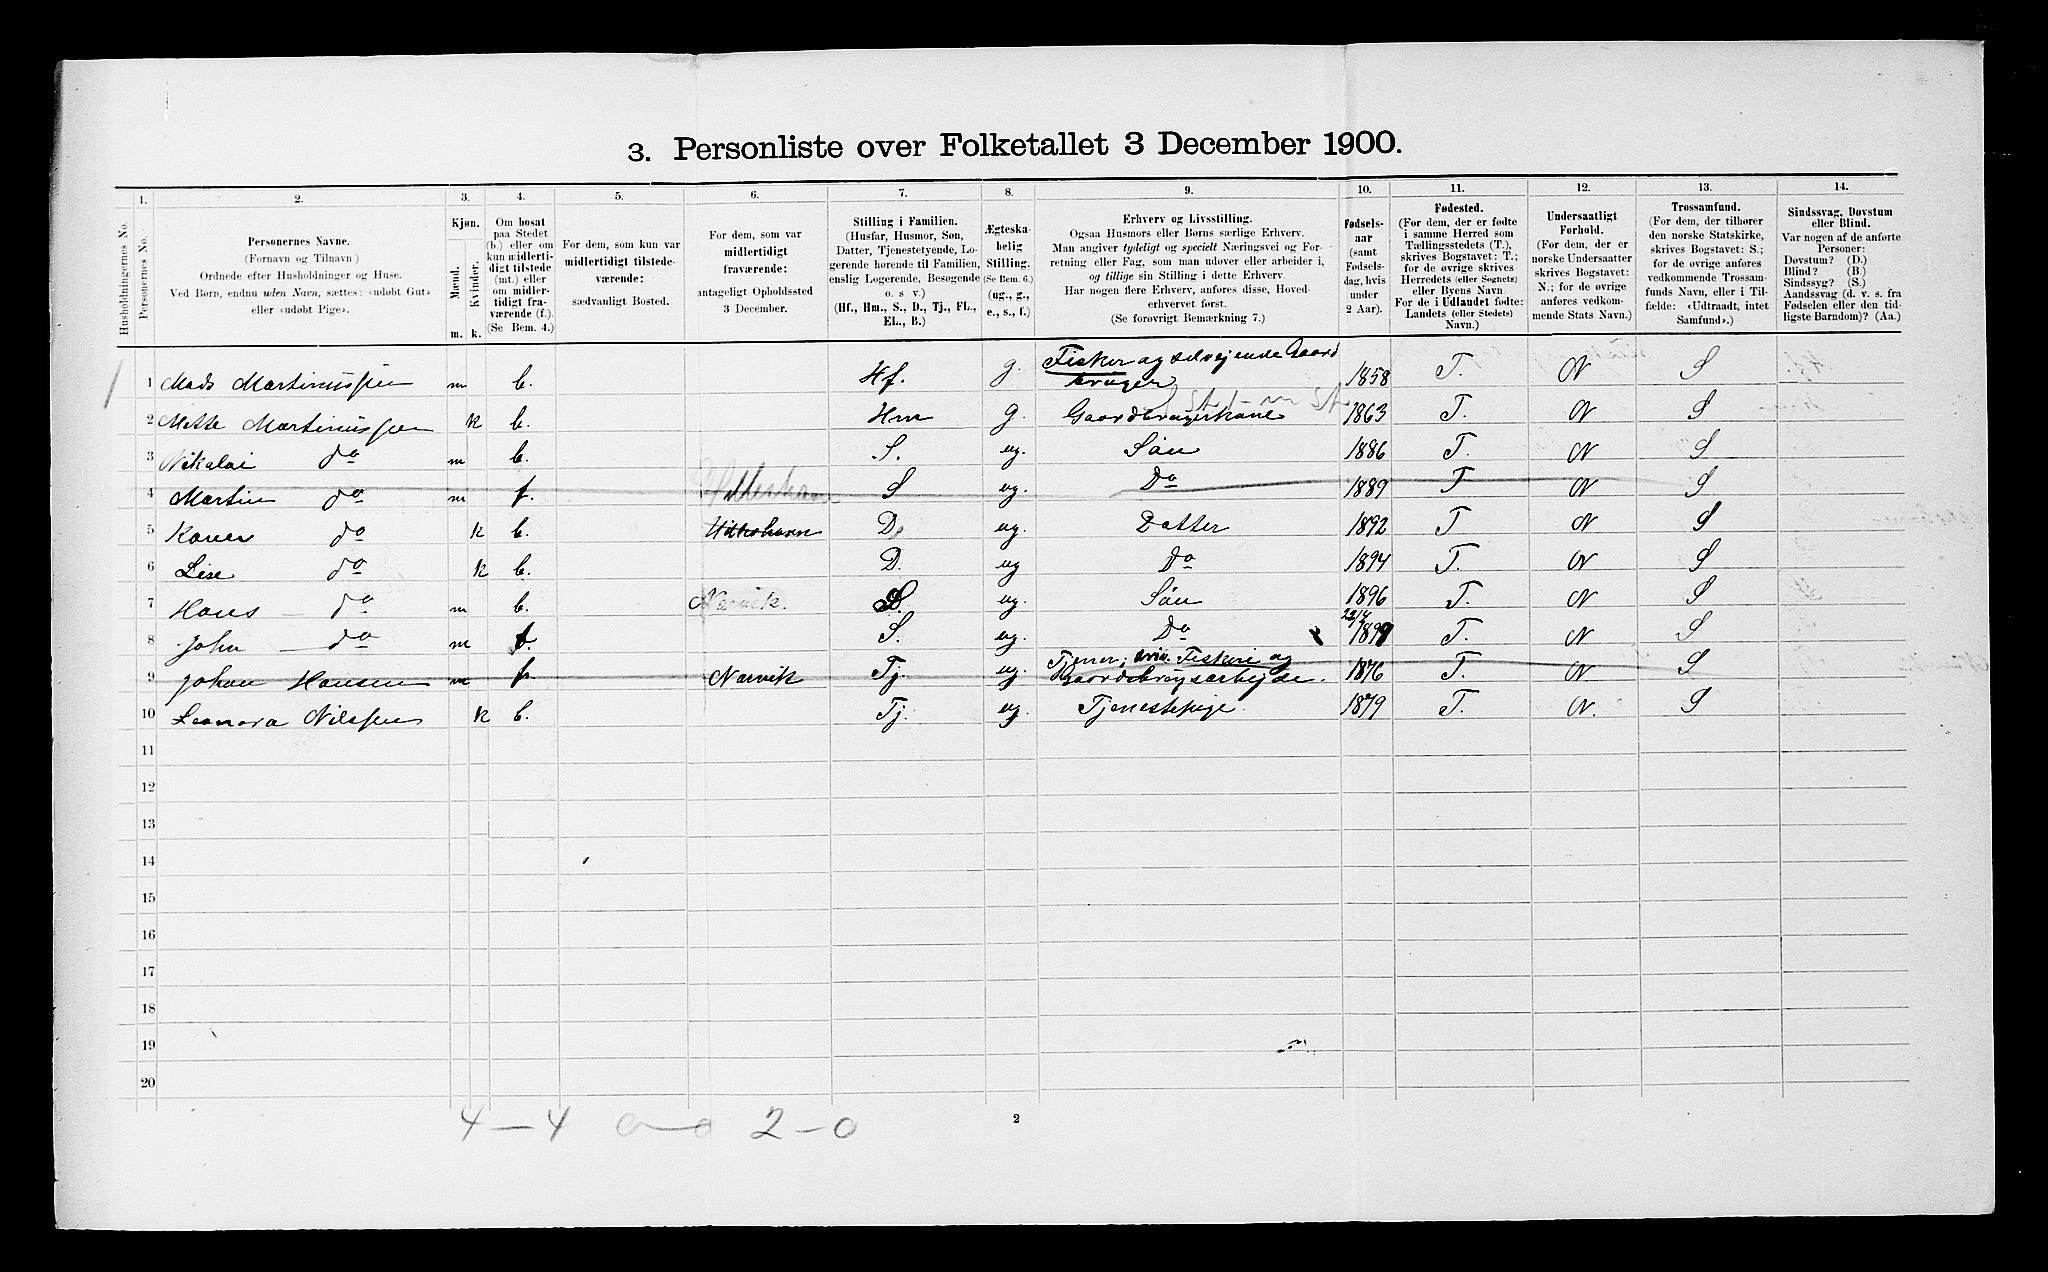 3. Personliste over Folketallet 3 December 1900.
1. 2. 3. 4. 5. 6. 7. 8. 9. 10. 11. 12. 13. 14.
Husholdningernes No.
Personernes No.
Personernes Navne.
(Fornavn og Tilnavn)
Ordnede efter Husholdninger og Huse.
Ved Børn, endnu uden Navn, sættes: «udøbt Gut»
eller «udøbt Pige».
Kjøn.
Mænd. Kvinder.
m. k.
Om bosat
paa Stedet
(b.) eller om
kun midlerti-
digt tilstede
(mt.) eller
om midler-
tidigt fra-
værende (f.)
(Se Bem. 4.)
For dem, som kun var
midlertidigt tilstede-
værende:
sædvanligt Bosted.
For dem, som var
midlertidigt
fraværende:
antageligt Opholdssted
3 December.
Stilling i Familien.
(Husfar, Husmor, Søn,
Datter, Tjenestetyende, Lo-
gerende hørende til Familien,
enslig Logerende, Besøgende
o. s v.)
(Hf., Hm., S., D., Tj., FL.,
EL., B.)
Ægteska-
belig
Stilling.
(Se Bem. 6.)
(ug., g.,
e., s., f.)
Erhverv og Livsstilling.
Ogsaa Husmors eller Børns særlige Erhverv.
Man angiver tydeligt og specielt Næringsvei og For-
retning eller Fag, som man udøver eller arbeider i,
og tillige sin Stilling i dette Erhverv.
Har nogen flere Erhverv, anføres disse, Hoved-
erhvervet først.
(Se forøvrigt Bemærkning 7.)
Fødsels-
aar
(samt
Fødsels-
dag, hvis
under
2 Aar).
Fødested.
(For dem, der er fødte
i samme Herred som
Tællingsstedets (T.),
skrives Bogstavet: T.;
for de øvrige skrives
Herredets (eller Sognets)
eller Byens Navn
For de i Udlandet fødte:
Landets (eller Stedets)
Navn.)
Undersaatligt
Forhold.
(For dem, der er
norske Undersaatter
skrives Bogstavet:
N.; for de øvrige
anføres vedkom-
mende Stats Navn.)
Trossamfund.
(For dem, der tilhører
den norske Statskirke,
skrives Bogstavet: S.;
for de øvrige anføres
vedkommende Trossam-
funds Navn, eller i Til-
fælde: «Udtraadt, intet
Samfund».)
Sindssvag, Døvstum
eller Blind.
Var nogen af de anførte
Personer:
Døvstum? (D.)
Blind? (B.)
Sindssyg? (S.)
Aandssvag (d. v. s. fra
Fødselen eller den tid-
ligste Barndom)? (Aa.)
1 1 Mads Martinussen m b. Hf. g. Fisker og selvejende Gaard
bruger 1858 T. N S
2 Mette Martinussen k b. Hm g. Gaardbrugerkone 1863 T. N S
3 Nikolai do m b. S. ug. Søn 1886 T. N S
4 Martin do m f. S ug. Do 1889 T N S
5 Karen do k b. D. ug. Datter 1892 T N S
6 Lise do k b. D. ug Do 1894 T. N S
7 Hans do m b. Narvik. S. ug. Søn 1896 T. N S
8 John do m f. S. ug. Do 1899 T. N S
9 Johan Hansen m f. Narvik Tj. ug. Tjener; driv. Fiskeri og
Gaardsbrugsarbejde. 1876 T. N S
10 Leonora Nilssen k b. Tj. ug. Tjenestepige. 1879 T. N. S
11
12
13
14
15
16
17
18
19
20
4 – 4 0 – 0 2 – 0
2